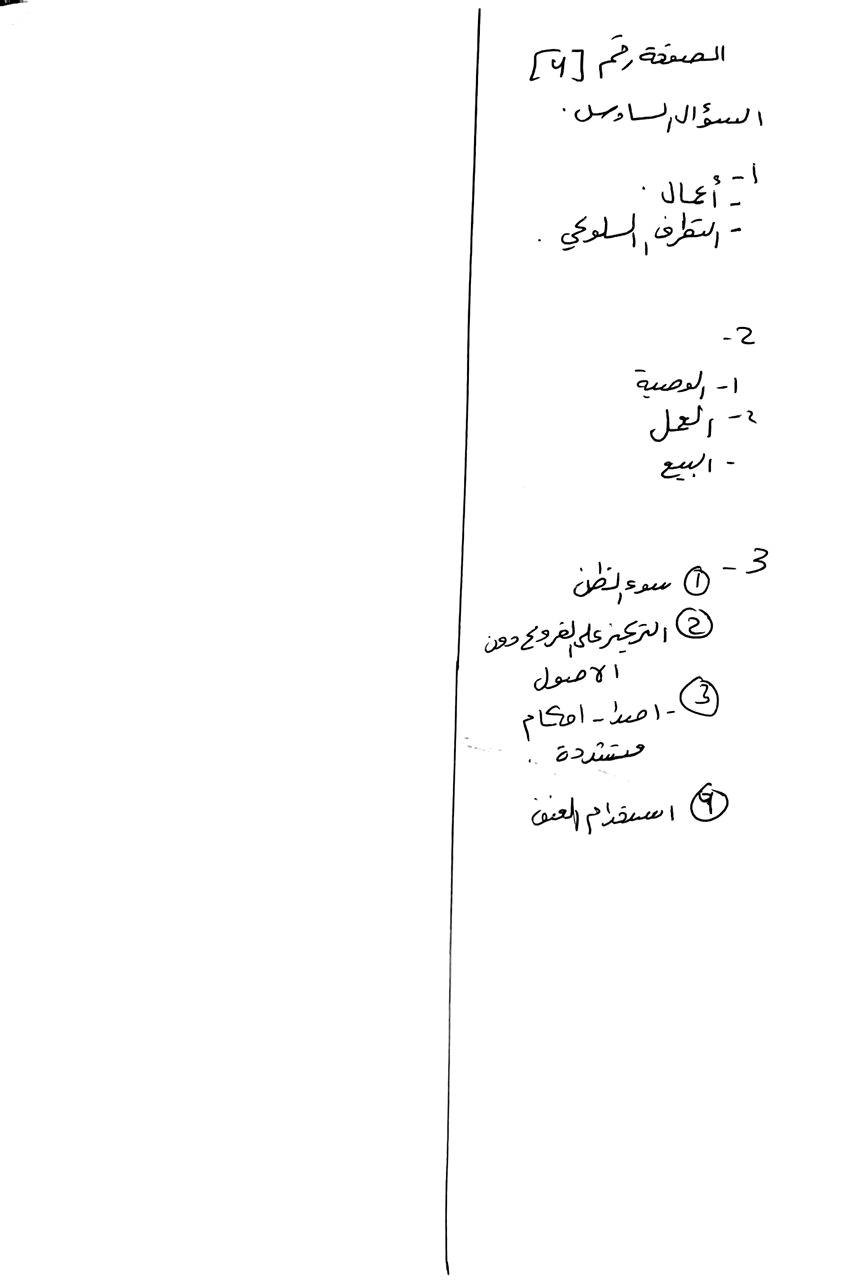 الصفحة رقم [4]
السؤال السادس.
1-
- أعمال.
- التطرف السلوكي.
2-
1- الوصية
2- العمل
- البيع
3-
① سوء الظن
② التركيز على الفروع دون
الاصول
③ - اصدار احكام
متشددة.
④ استخدام العنف